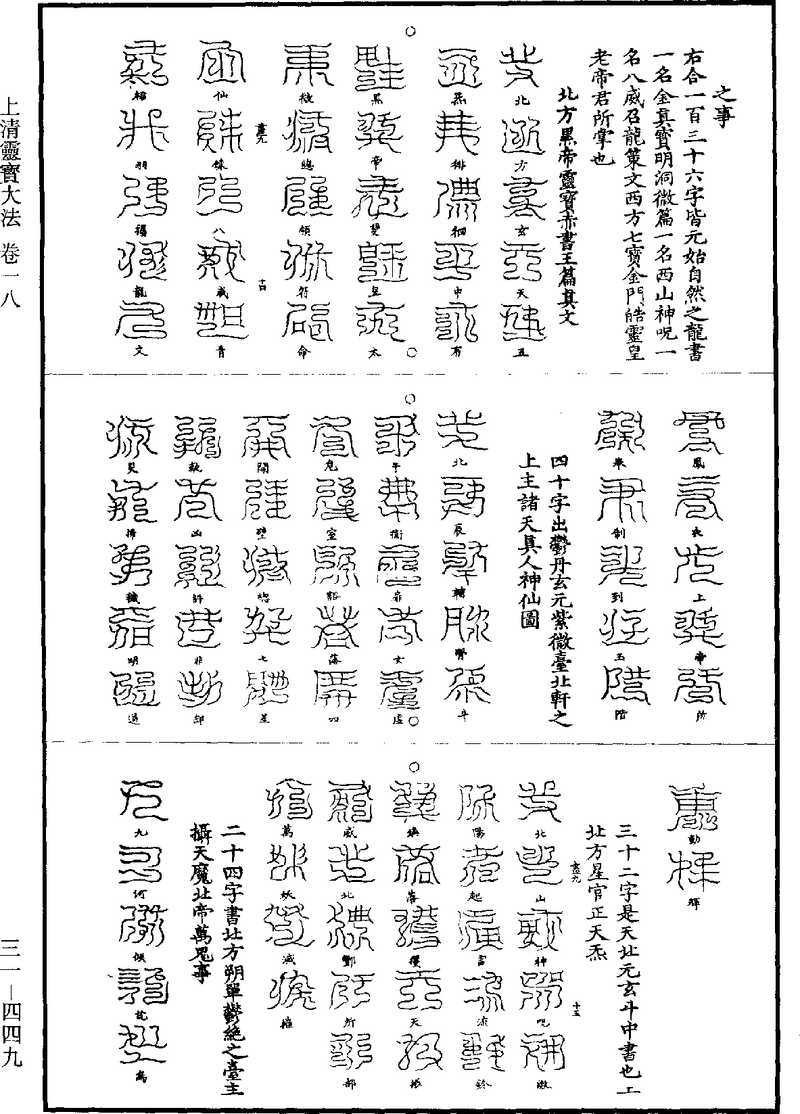 上清靈寶大法 卷一八
三一－四四九
之事
右合一百三十六字皆元始自然之龍書
一名金真寶明洞微篇一名西山神呪一
名八威召龍策文西方七寶金門皓靈皇
老帝君所掌也
北方黑帝靈寶赤書玉篇真文
北方玄天五
炁徘徊中有
黑帝雙皇太
微總領符命
仙錄八威青
羽龍文
鳳衣上帝所
舉制到玉階
四十字出鬱丹玄元紫微臺北軒之
上主諸天真人神仙圖
北辰輔肾斗
牛衛扉女虛
危室豁落四
開壁總七星
執凶非却
災掃穢明過
動輝
三十二字是天北元玄斗中書也上
北方星官正天炁
北山神呪激
陽起雷流鈴
落玃天振
威北酆所部
萬妖滅摧
二十四字書北方朔單鬱絶之臺主
攝天魔北帝萬鬼事
九河傾訖萬